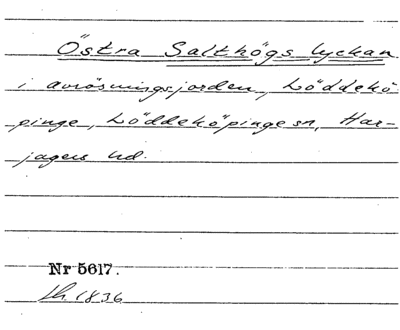 Östra Salthögs lyckan
i avrösningsjorden, Löddekö-
pinge, Löddeköpinge sn, Har-
jagers hd.
Nr 5617.
1836